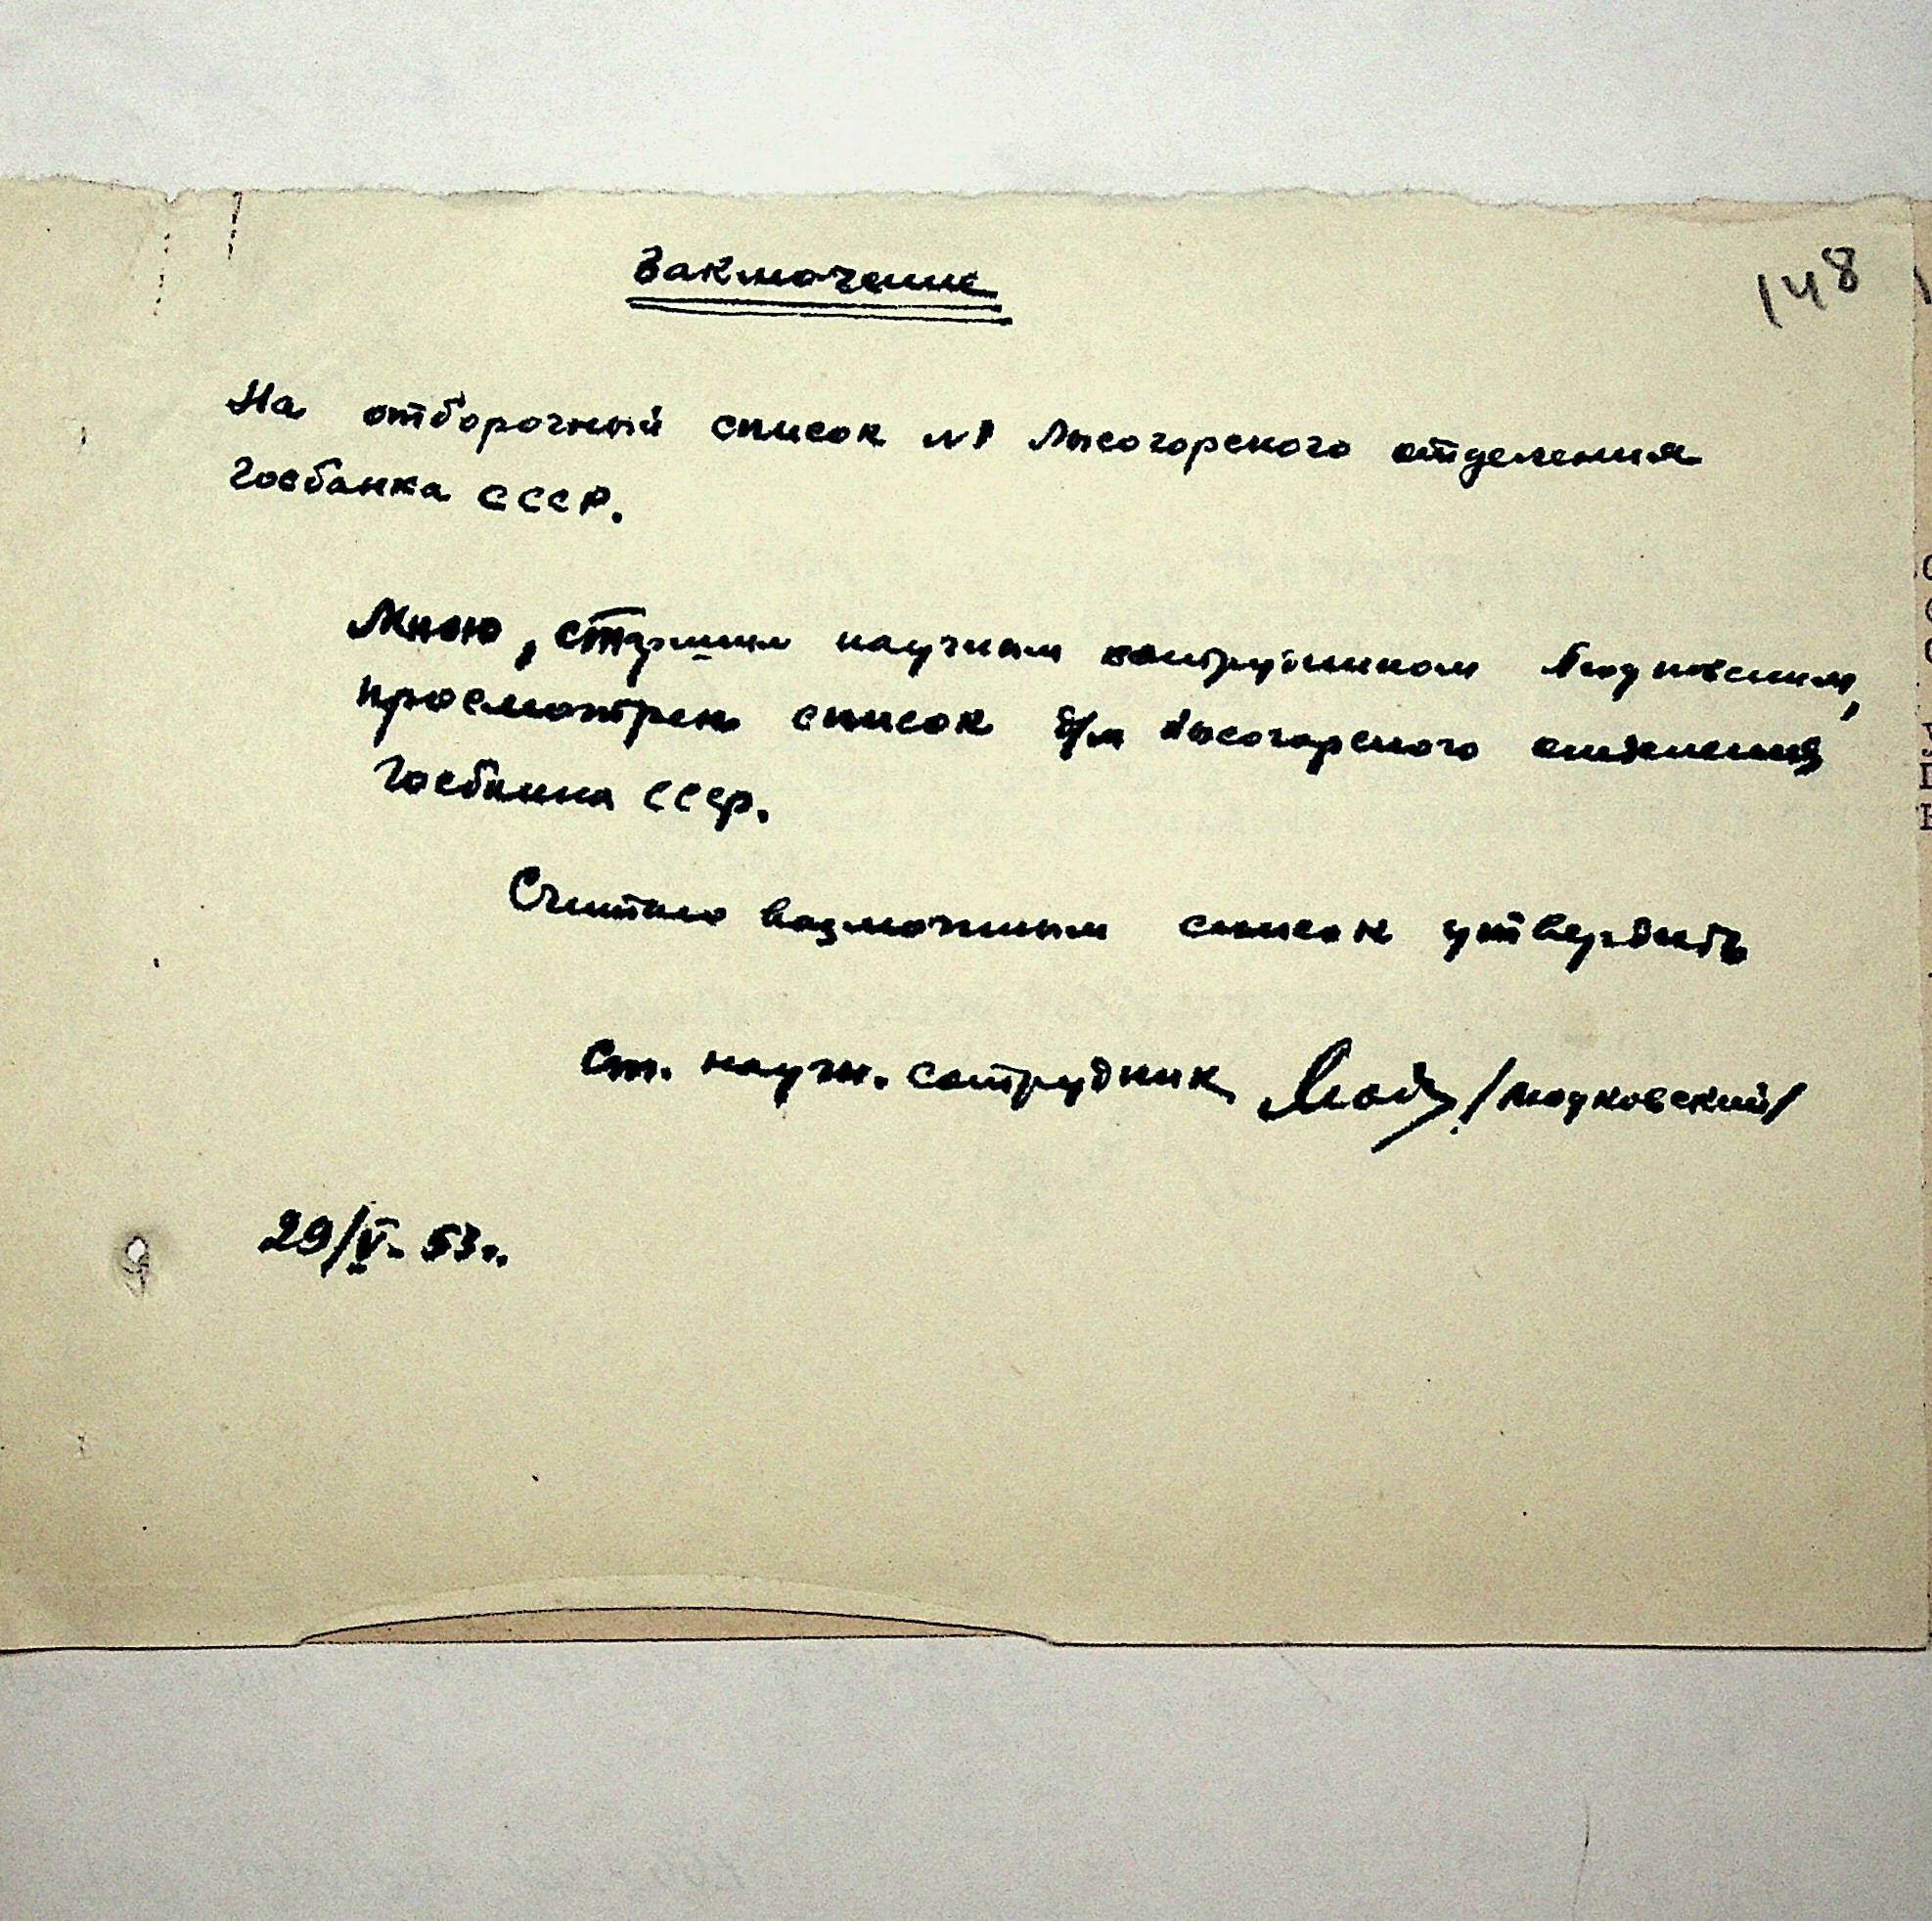 148
Заключение
На отборочный список №1 Лысогорского отделения
Госбанка СССР.
Мною, старшим научным сотрудником Людковским,
просмотрен список д/м Лысогорского отделения
Госбанка СССР.
Считаю возможным список утвердить
Ст. научн. сотрудник /Людковский/
29/V- 53 г.